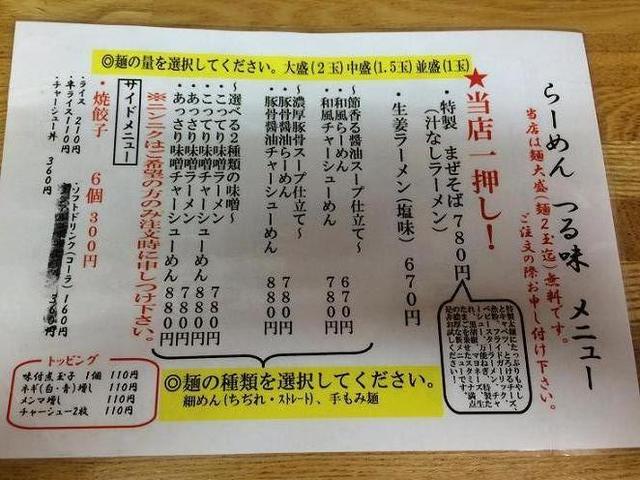 らーめん つる味 メニュー
当店は麺大盛(麺2玉迄)無料です。
ご注文の際お申し付け下さい。
◎麺の量を選択してください。大盛(2玉)中盛(1.5玉)並盛(1玉)
★当店一押し!
・特製 まぜそば 780円
(汁なしラーメン)
・生姜ラーメン(塩味) 670円
~節香る醤油スープ仕立て~
・和風らーめん 670円
・和風チャーシューめん 780円
~濃厚豚骨スープ仕立て~
・豚骨醤油らーめん 780円
・豚骨醤油チャーシューめん 880円
~選べる2種類の味噌~
・こってり味噌ラーメン 780円
・こってり味噌チャーシューめん 880円
・あっさり味噌ラーメン 780円
・あっさり味噌チャーシューめん 880円
※ニンニクはご希望の方のみ注文時に申しつけ下さい。
◎麺の種類を選択してください。
細めん(ちぢれ・ストレート)、手もみ麺
サイドメニュー
・焼餃子 6個 300円
・ライス 210円
・半ライス 110円
・チャーシュー丼 360円
・ソフトドリンク(コーラ) 160円
360円
トッピング
味付煮玉子 1個 110円
ネギ(白・青)増し 110円
メンマ増し 110円
チャーシュー2枚 110円